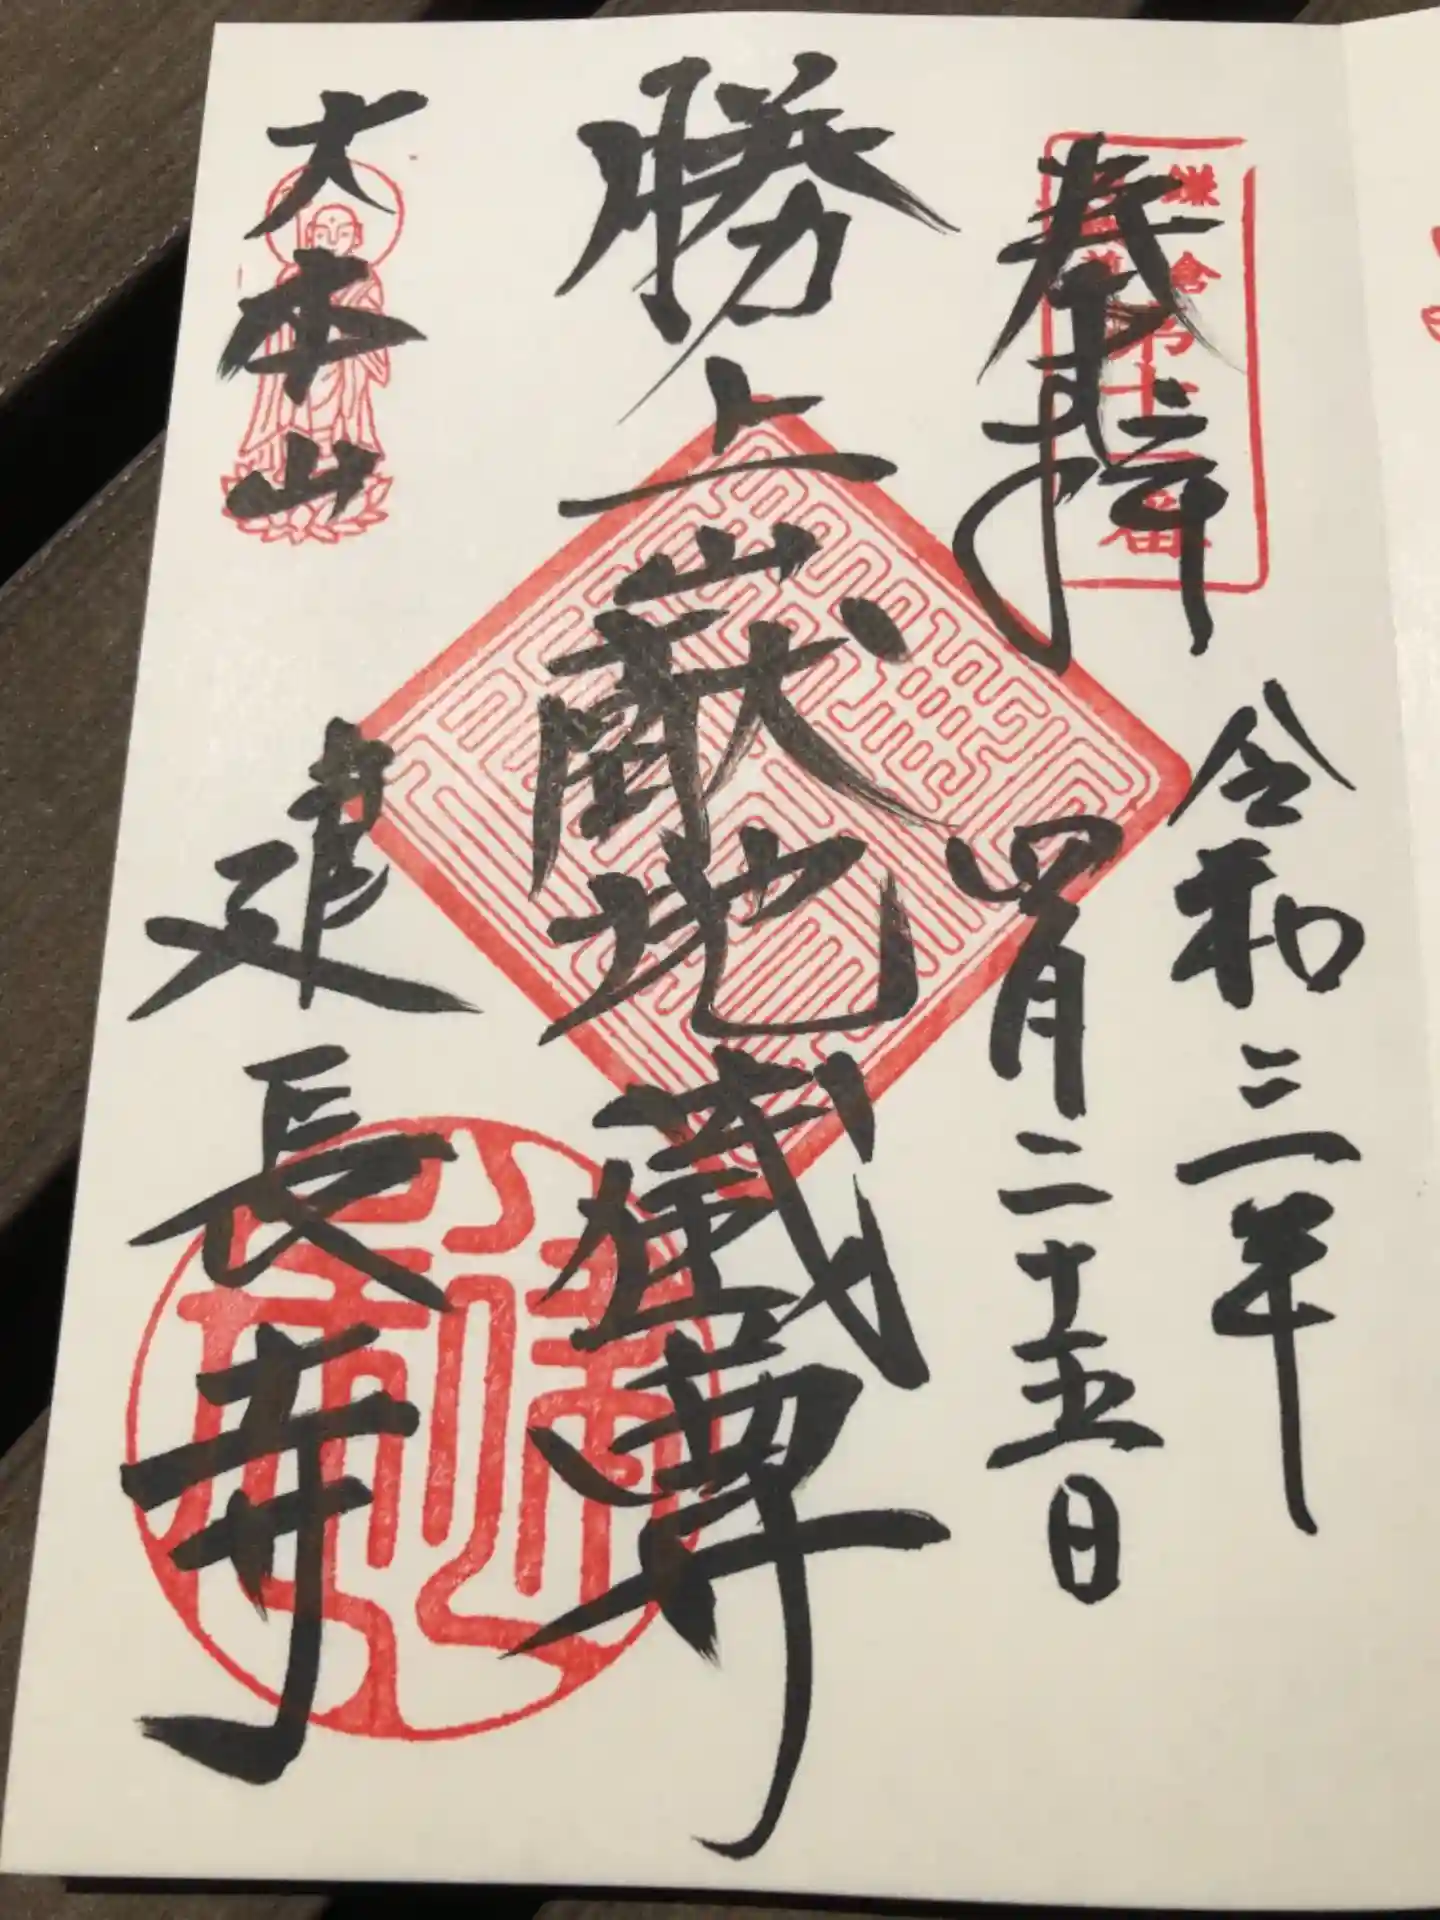 奉拝
鎌倉
第十
番
令和三年
四月二十五日
勝上嶽地蔵尊
大本山
建長寺